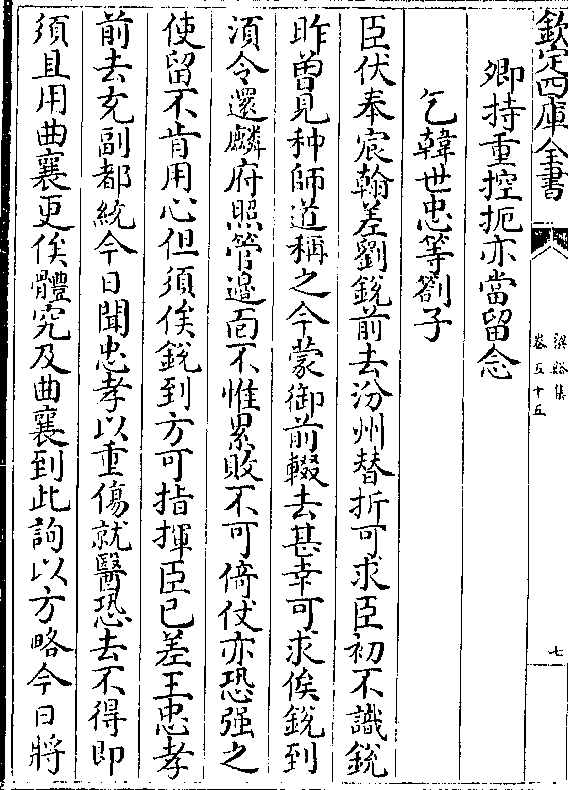 欽定四庫全書
梁谿集
卷五十五
七
卿持重控扼亦當留念
乞韓世忠等劄子
臣伏奉宸翰差劉銳前去汾州替折可求臣初不識銳
昨曽見种師道稱之今蒙御前輟去甚幸可求俟銳到
湏令還麟府照管邉面不惟累敗不可倚仗亦恐强之
使留不肯用心但須俟銳到方可指揮臣已差王忠孝
前去充副都統今日聞忠孝以重傷就醫恐去不得即
須且用曲襄更俟體究及曲襄到此詢以方略今日將